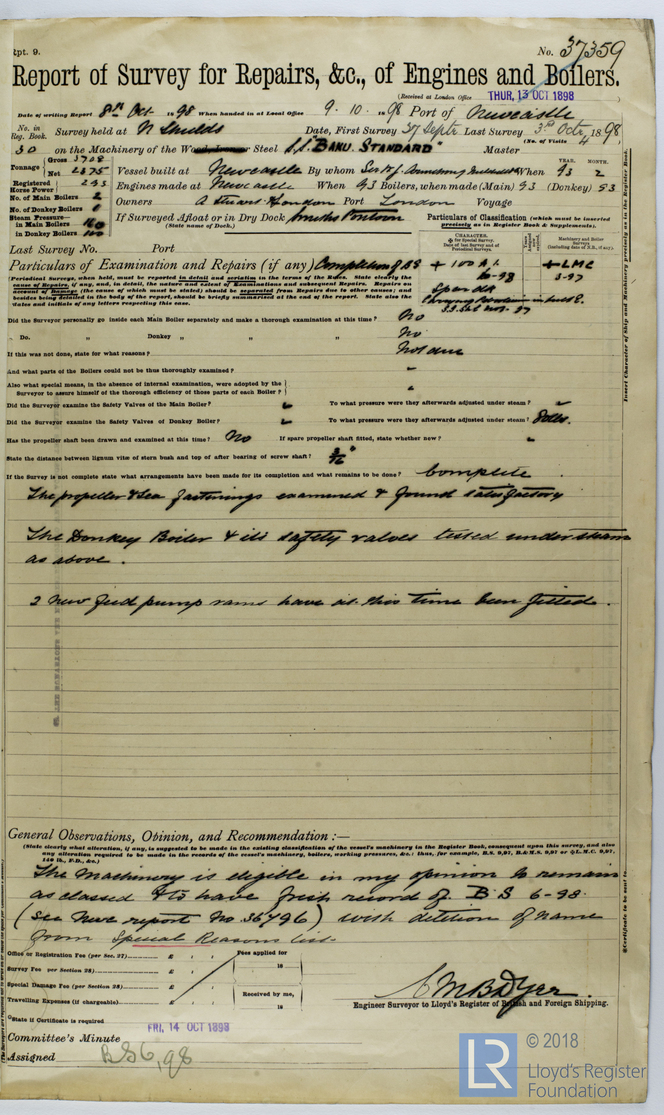 Rpt. 9.
No. 37359
Report of Survey for Repairs, &c., of Engines and Boilers.
(Received at London Office THUR, 13 OCT 1898
Date of writing Report 8th Oct 1898 When handed in at Local Office 9.10.1898 Port of Newcastle
No. in Reg. Book. Survey held at N Shields Date, First Survey 27 Septr Last Survey 3rd Octr 1898
(No. of Visits 4
30 on the Machinery of the Steel S.S. "BAKU STANDARD" Master
Tonnage Gross 3708
Net 2375
Vessel built at Newcastle By whom When 93 2
YEAR. MONTH.
Registered Horse Power 293
Engines made at Newcastle When 93 Boilers, when made (Main) 93 (Donkey) 93
No. of Main Boilers 2
Owners A Stuart London Port London Voyage
No. of Donkey Boilers 1
Steam Pressure—
in Main Boilers 160
in Donkey Boilers 100
If Surveyed Afloat or in Dry Dock Smiths Pontoon
(State name of Dock.)
Particulars of Classification (which must be inserted precisely as in Register Book & Supplements).
Last Survey No. Port
Particulars of Examination and Repairs (if any) Completion of BS
+ 100 A 1. + LMC
6-98 3-97
Spar dk
Carrying Petroleum in bulk
(Periodical Surveys, when held, must be reported in detail and seriatim in the terms of the Rules. State clearly the
cause of Repairs, if any, and, in detail, the nature and extent of Examinations and subsequent Repairs. Repairs on
account of Damage (the cause of which must be stated) should be separated from Repairs due to other causes; and
besides being detailed in the body of the report, should be briefly summarised at the end of the report. State also the
dates and initials of any letters respecting this case.
Did the Surveyor personally go inside each Main Boiler separately and make a thorough examination at this time? No
" Do. " Donkey " " " No
If this was not done, state for what reasons? Not due
And what parts of the Boilers could not be thus thoroughly examined? "
Also what special means, in the absence of internal examination, were adopted by the
Surveyor to assure himself of the thorough efficiency of those parts of each Boiler? "
Did the Surveyor examine the Safety Valves of the Main Boiler? To what pressure were they afterwards adjusted under steam?
Did the Surveyor examine the Safety Valves of Donkey Boiler? To what pressure were they afterwards adjusted under steam?
Has the propeller shaft been drawn and examined at this time? No If spare propeller shaft fitted, state whether new? "
State the distance between lignum vitæ of stern bush and top of after bearing of screw shaft? 3/16"
If the Survey is not complete state what arrangements have been made for its completion and what remains to be done? Complete.
The propeller & Sea fastenings examined & found satisfactory
The Donkey Boiler & its safety valves tested under steam
as above.
2 New feed pump rams have at this time been fitted.
Insert Character of Ship and Machinery precisely as in the Register Book
General Observations, Opinion, and Recommendation:—
(State clearly what alteration, if any, is suggested to be made in the existing classification of the vessel's machinery in the Register Book, consequent upon this survey, and also
any alteration required to be made in the records of the vessel's machinery, boilers, working pressures, &c.: thus, for example, B.S. 9,97, B.&M.S. 9,97 or L.M.C. 9,97,
140 lb., F.D., &c.)
The Machinery is eligible in my opinion to remain
as classed & to have fresh record of B S 6-98.
(See Nwc report No 36796) with deletion of name
from Special Reasons list.
Office or Registration Fee (per Sec. 27) £ : :
Fees applied for
18
Survey Fee (per Section 28) £ : :
Special Damage Fee (per Section 28) £ : :
Received by me,
18
Travelling Expenses (if chargeable) £ : :
Engineer Surveyor to Lloyd's Register of British and Foreign Shipping.
State if Certificate is required
Committee's Minute FRI, 14 OCT 1898
Assigned B S 6,98
© 2018
LR
Lloyd's Register
Foundation